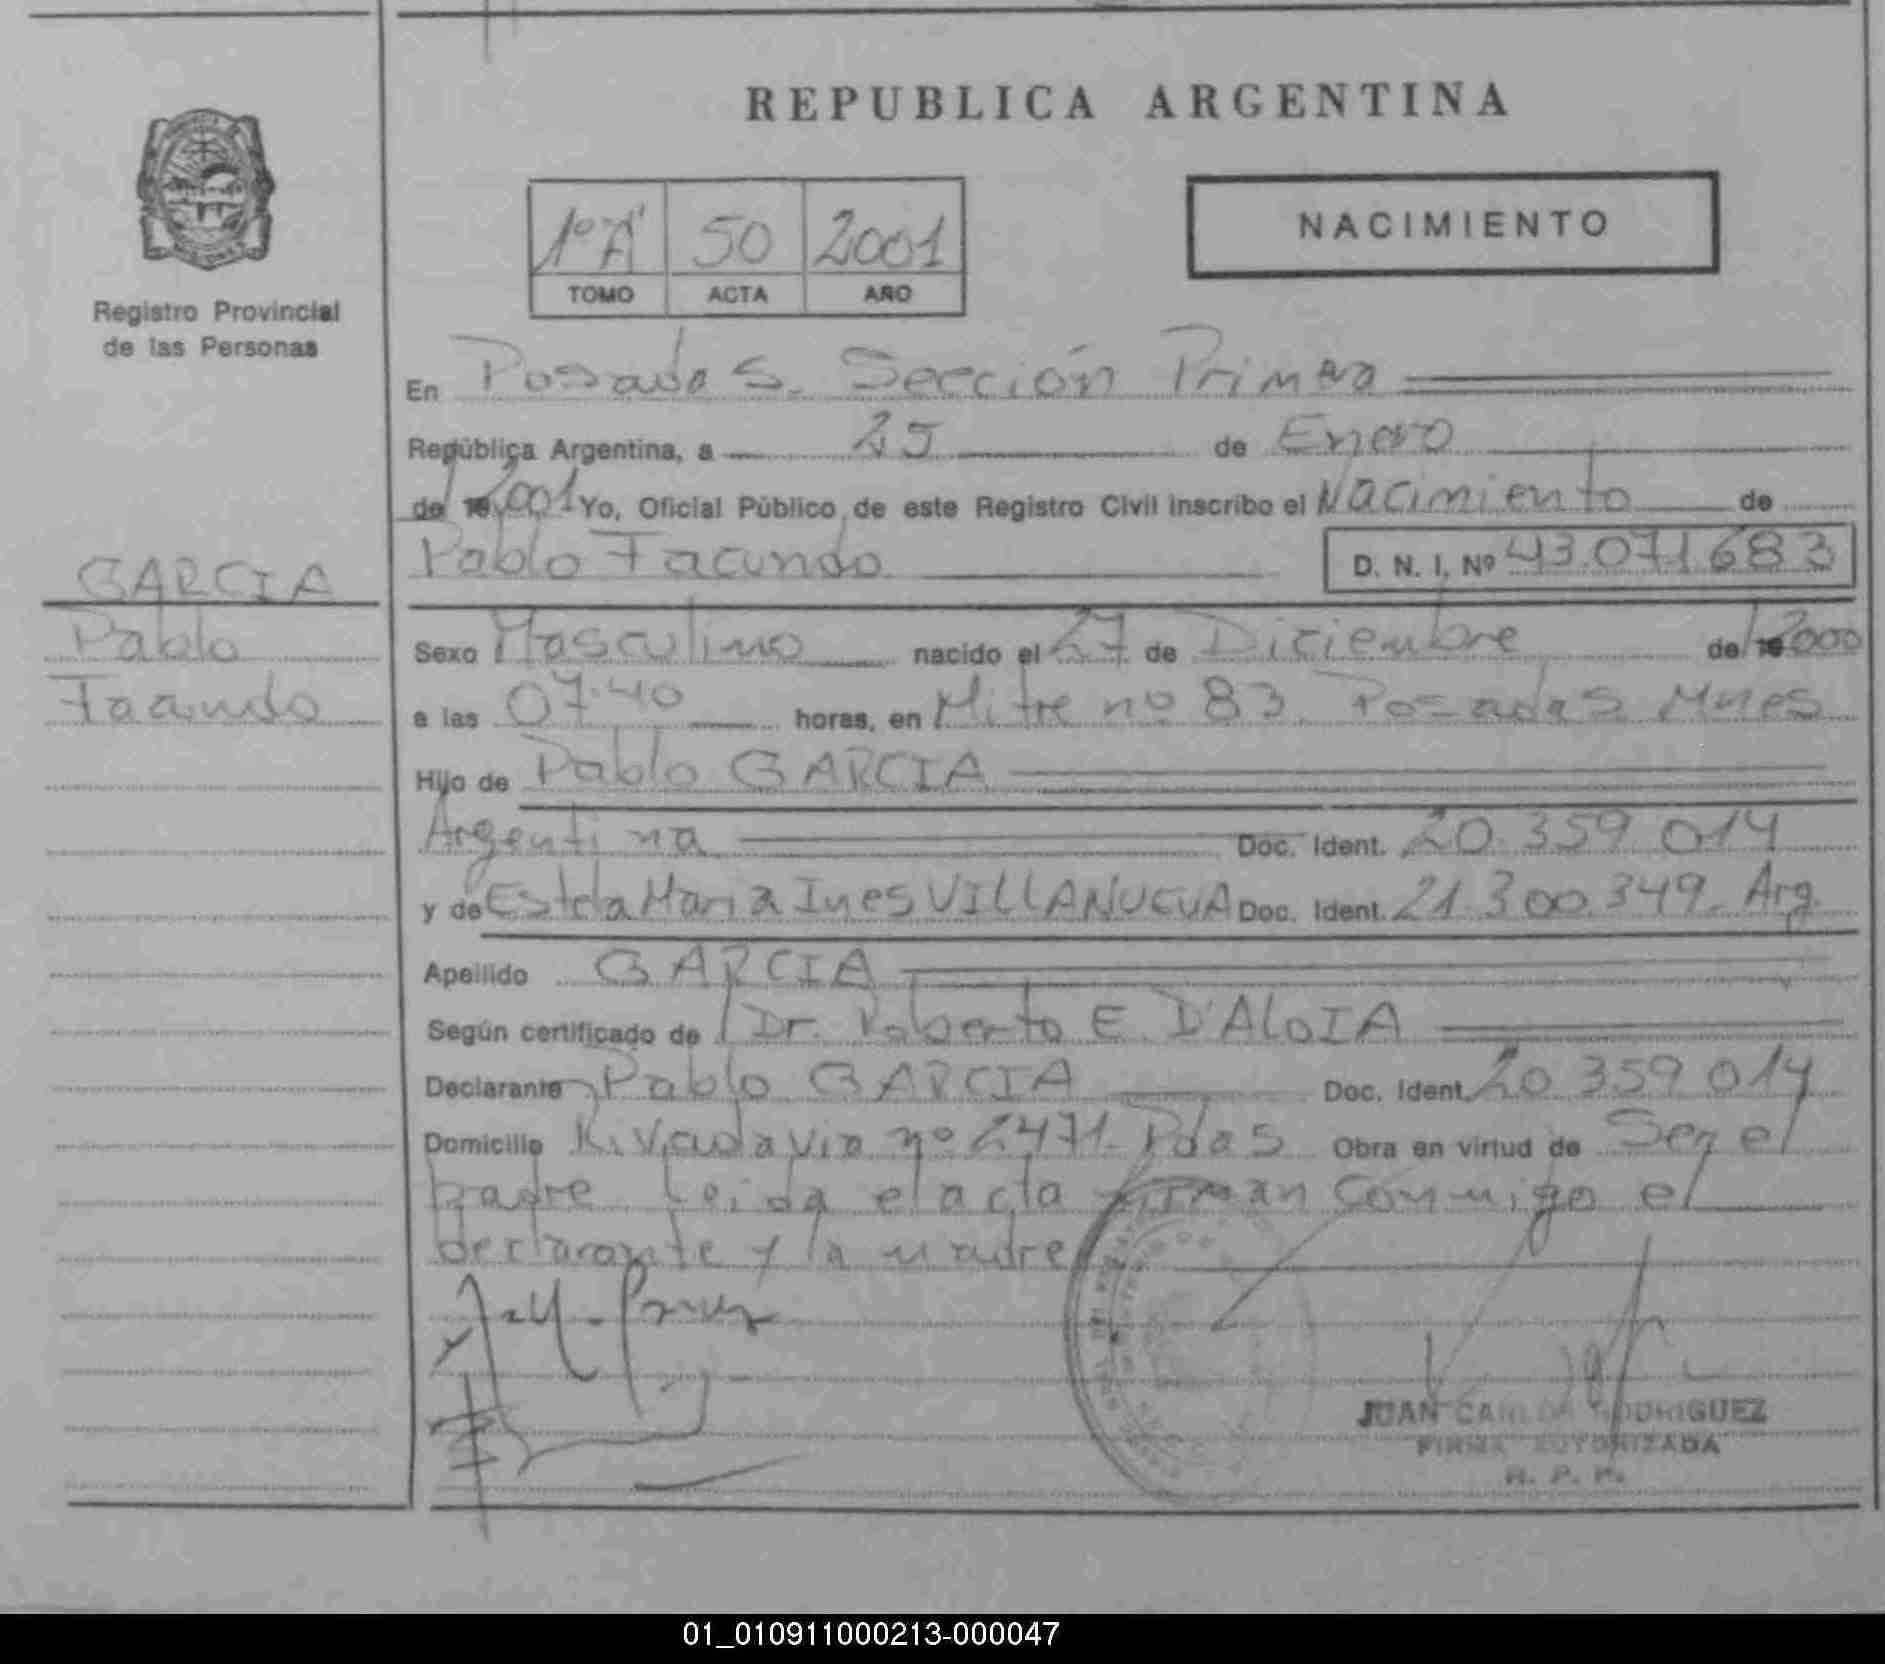 REPUBLICA ARGENTINA
NACIMIENTO
1º "A" 50 2001
TOMO ACTA AÑO
Registro Provincial
de las Personas
En Posadas. Sección Primera
República Argentina, a 25 de Enero
de 19 2001 Yo, Oficial Público de este Registro Civil inscribo el Nacimiento de
Pablo Facundo D. N. I. Nº 43.071.683
GARCIA
Pablo
Facundo
Sexo Masculino nacido el 27 de Diciembre de 19 2000
a las 07.40 horas, en Mitre nº 83 Posadas Mnes
Hijo de Pablo GARCIA
Argentina Doc. Ident. 20.359.014
y de Estela Maria Ines VILLANUEVA Doc. Ident. 21.300.349. Arg.
Apellido GARCIA
Según certificado de Dr. Roberto E. D'ALOIA
Declarante Pablo GARCIA Doc. Ident. 20.359.014
Domicilio Rivadavia nº 2471- Pdas Obra en virtud de Ser el
padre Leida el acta firman conmigo el
declarante y la madre
JUAN CARLOS RODRIGUEZ
FIRMA AUTORIZADA
R. P. P.
01_010911000213-000047